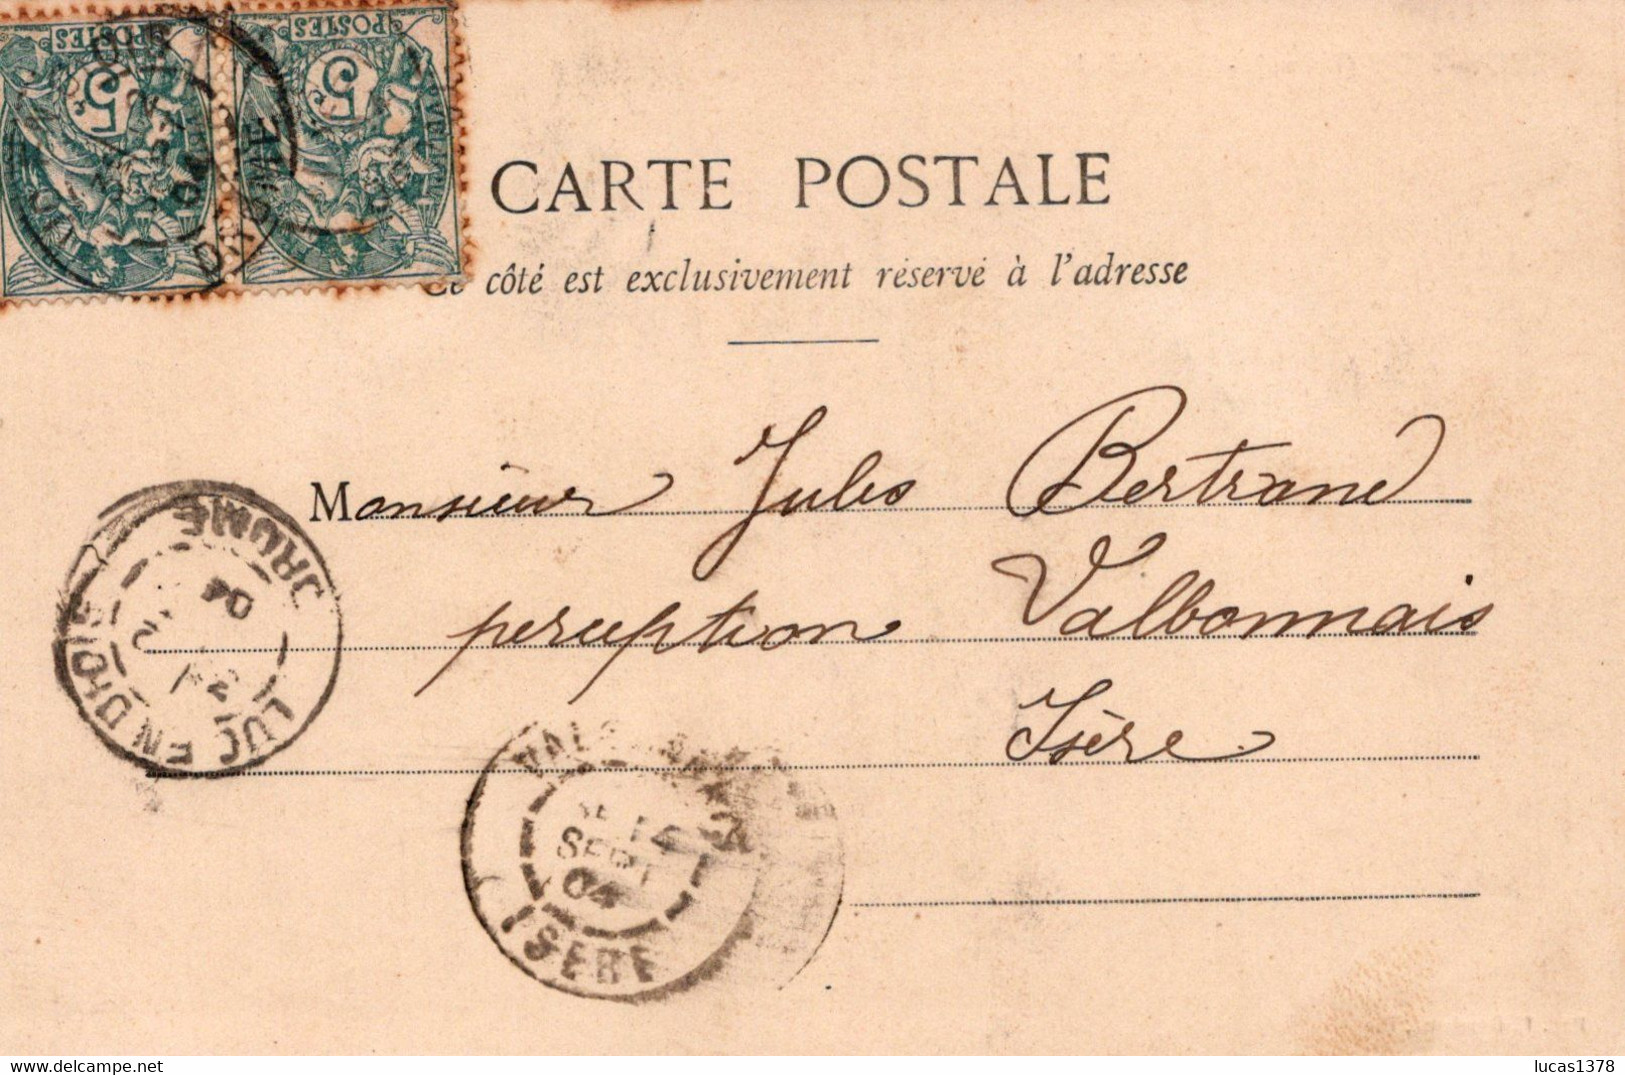 POSTES POSTES
5 5
DROME
CARTE POSTALE
Ce côté est exclusivement réservé à l'adresse
Monsieur Jules Bertrand
perception Valbonnais
Isère
LUC EN DIOIS DROME
2
04
SEPT
04
ISERE
lucas1378